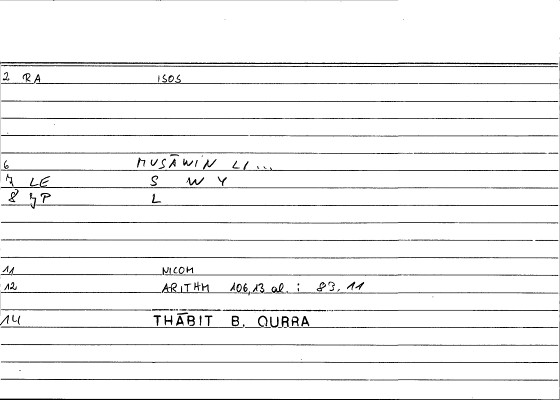 2 RA ISOS
6 MUSĀWIN LI...
7 LE S W Y
8 JP L
11 NICOM
12 ARITHM 106,13 al. : 83.11
14 THĀBIT B. QURRA